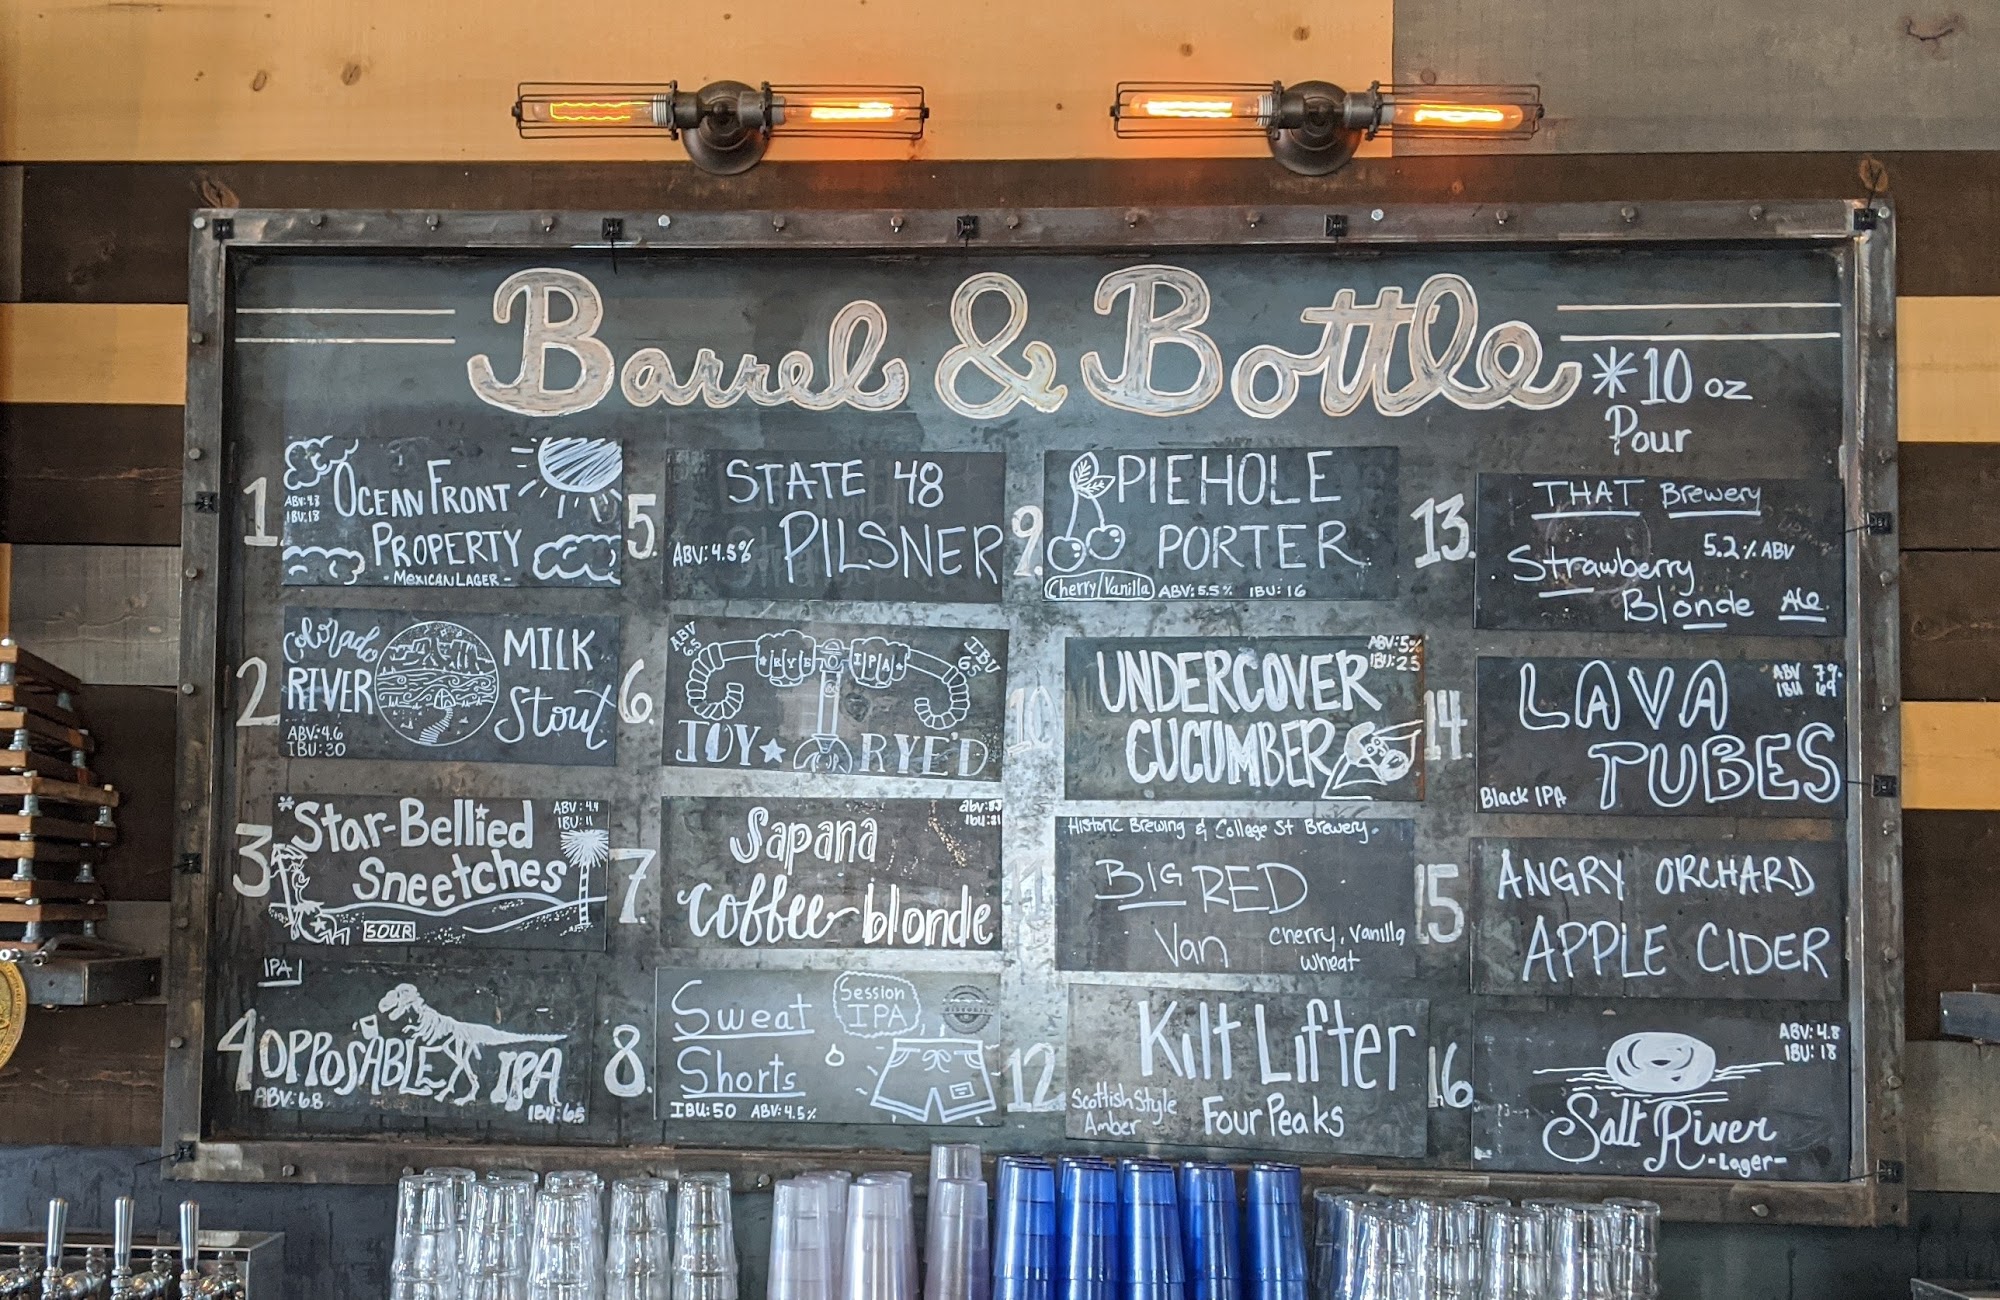 Barrel & Bottle
*10 oz
Pour
1.
ABV: 4.3
IBU: 18
OCEAN FRONT
PROPERTY
- MEXICAN LAGER -
2
Colorado
RIVER
MILK
Stout
ABV: 4.6
IBU: 30
3
*Star-Bellied
Sneetches
ABV: 4.4
IBU: 11
SOUR
4
IPA
OPPOSABLE IPA
ABV: 6.8
IBU: 65
5.
STATE 48
PILSNER
ABV: 4.5%
6.
ABV
6.5
RYE IPA
IBU
65
JOY RYE'D
7.
Sapana
coffee blonde
8.
Sweat
Shorts
Session
IPA
IBU: 50 ABV: 4.5%
9.
PIEHOLE
PORTER
Cherry/Vanilla ABV: 5.5% IBU: 16
10
UNDERCOVER
CUCUMBER
ABV: 5%
IBU: 25
11
Historic Brewing & College St Brewery.
BIG RED
Van
Cherry, vanilla
wheat
12
Kilt Lifter
Scottish Style
Amber
Four Peaks
13.
THAT Brewery
5.2% ABV
Strawberry
Blonde Ale
14
LAVA
TUBES
ABV 7%
IBU 69
Black IPA
15
ANGRY ORCHARD
APPLE CIDER
16
ABV: 4.8
IBU: 18
Salt River
- Lager -